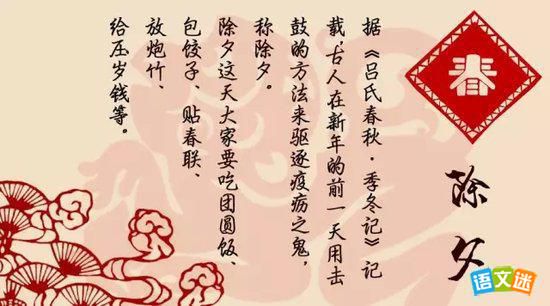 春
除夕
据《吕氏春秋·季冬记》记
载,古人在新年的前一天用击
鼓的方法来驱逐疫疬之鬼,
称除夕。
除夕这天大家要吃团圆饭、
包饺子、贴春联、
放炮竹、
给压岁钱等。
语文迷